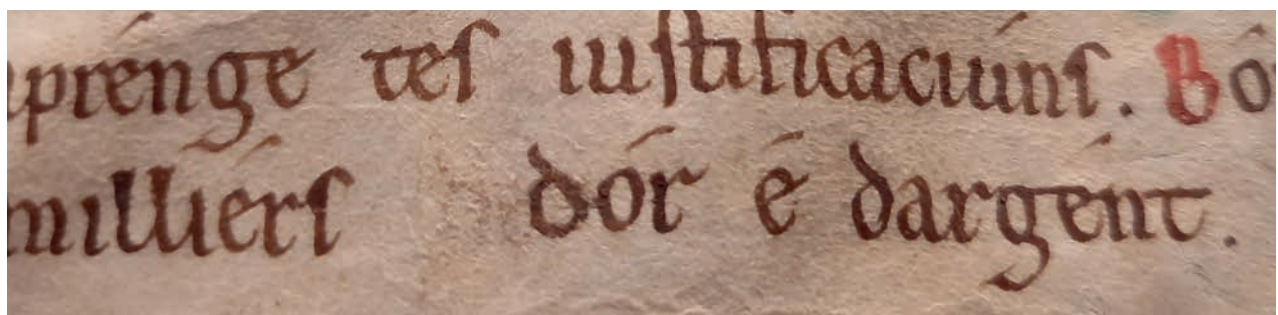 aprénge tes iustificaciúns. Bó
milliérs dór é dargént.